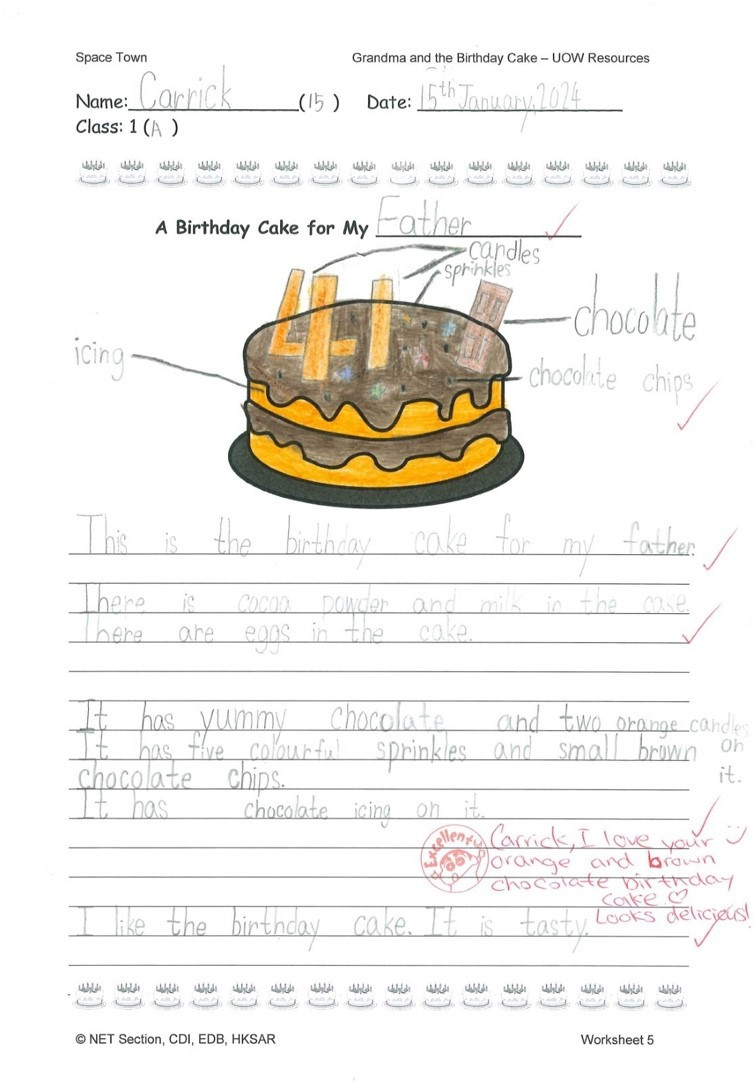 Space Town
Grandma and the Birthday Cake – UOW Resources
Name: Carrick (15) Date: 15th January, 2024
Class: 1 (A)
A Birthday Cake for My Father
candles
sprinkles
chocolate
icing
chocolate chips
41
This is the birthday cake for my father.
There is cocoa powder and milk in the cake.
There are eggs in the cake.
It has yummy chocolate and two orange candles on it.
It has five colourful sprinkles and small brown
chocolate chips.
It has chocolate icing on it.
Excellent
Carrick, I love your
orange and brown
chocolate birthday
cake
Looks delicious!
I like the birthday cake. It is tasty.
© NET Section, CDI, EDB, HKSAR
Worksheet 5